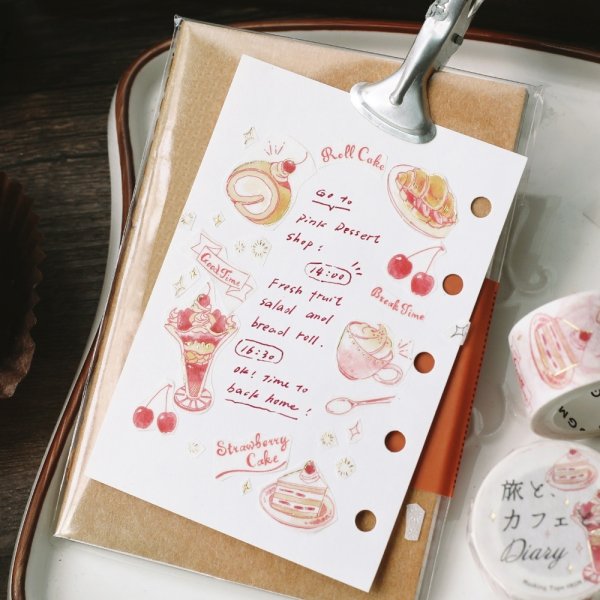 Roll Cake
Go to
pink Dessert
shop!
14:00
Good Time
Break Time
Fresh fruit
salad and
bread roll.
16:30
ok! Time to
back home!
Strawberry
Cake
旅と、
カフェと
Diary
Masking Tape